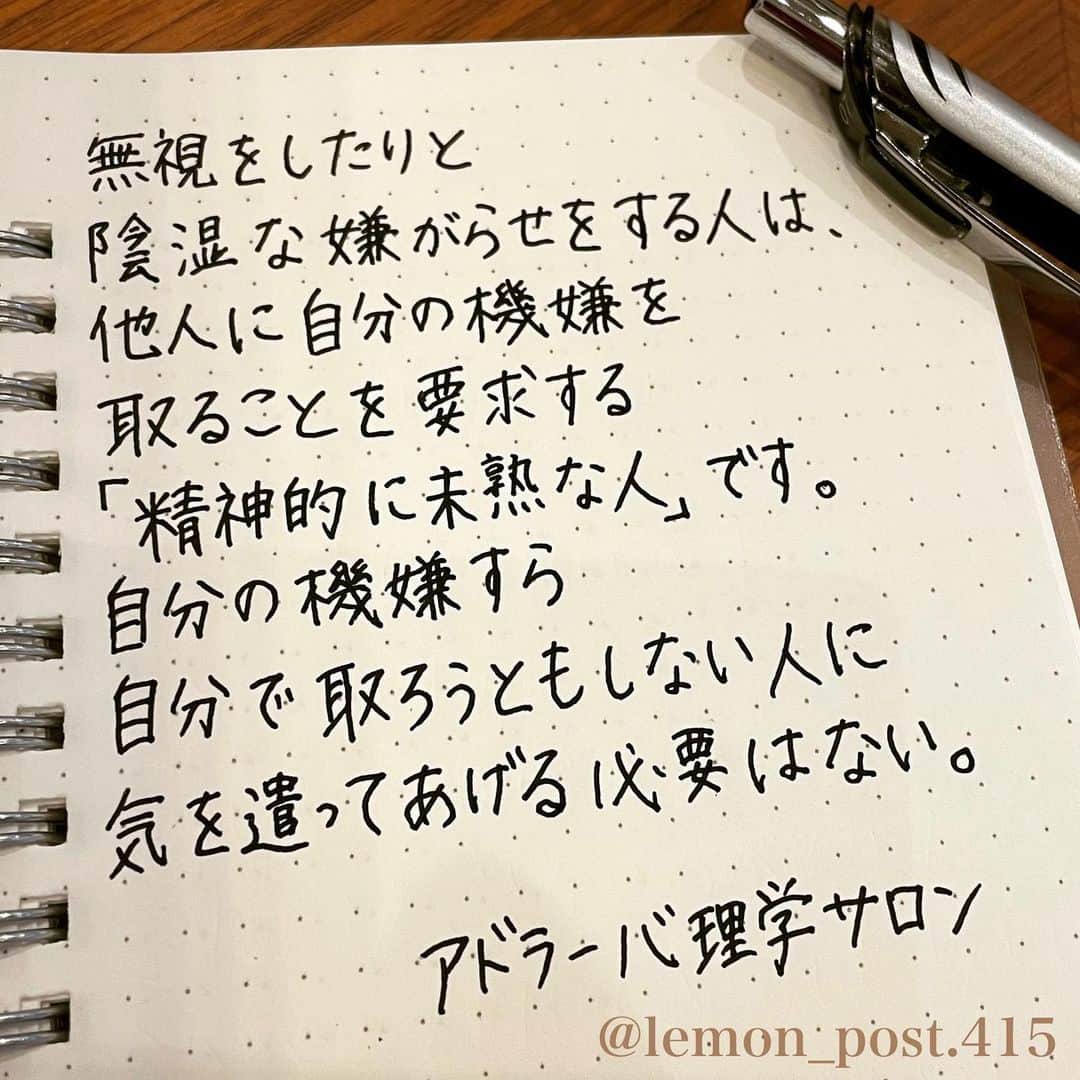 無視をしたりと
陰湿な嫌がらせをする人は、
他人に自分の機嫌を
取ることを要求する
「精神的に未熟な人」です。
自分の機嫌すら
自分で取ろうともしない人に
気を遣ってあげる必要はない。
アドラー心理学サロン
@lemon_post.415